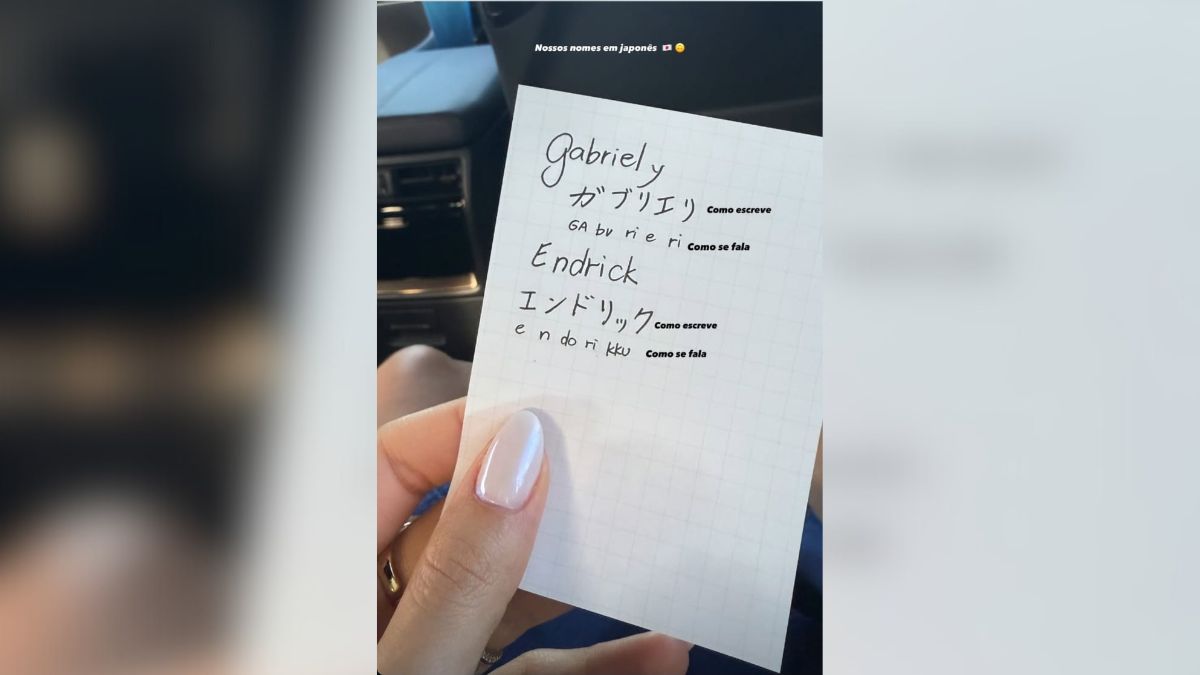 Nossos nomes em japonês 🇯🇵 🙃
Gabriely
ガブリエリ Como escreve
GA bu ri e ri Como se fala
Endrick
エンドリック Como escreve
e n do ri kku Como se fala